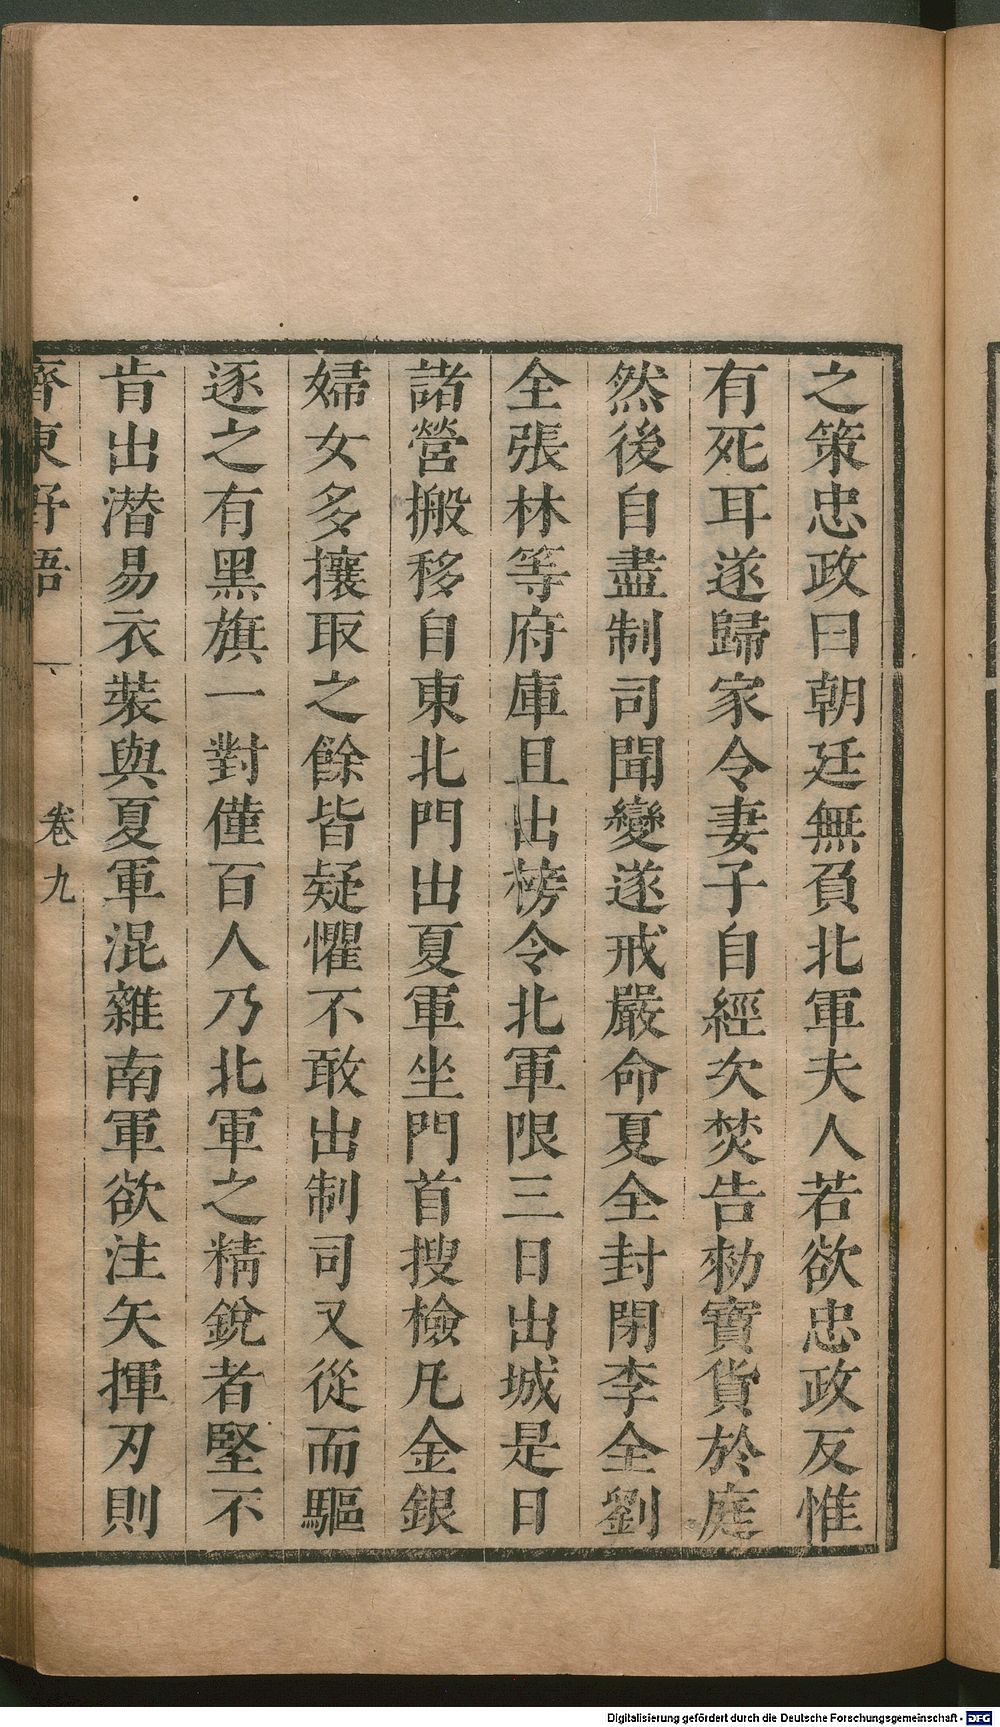 之策忠政曰朝廷無負北軍夫人若欲忠政反惟
有死耳遂歸家令妻子自經次焚告勑寶貨於庭
然後自盡制司聞變遂戒嚴命夏全封閉李全劉
全張林等府庫且出榜令北軍限三日出城是日
諸營搬移自東北門出夏軍坐門首搜檢凡金銀
婦女多攘取之餘皆疑懼不敢出制司又從而驅
逐之有黑旗一對僅百人乃北軍之精銳者堅不
肯出潛易衣裝與夏軍混雜南軍欲注矢揮刃則
齊東野語
卷九
Digitalisierung gefördert durch die Deutsche Forschungsgemeinschaft - DFG